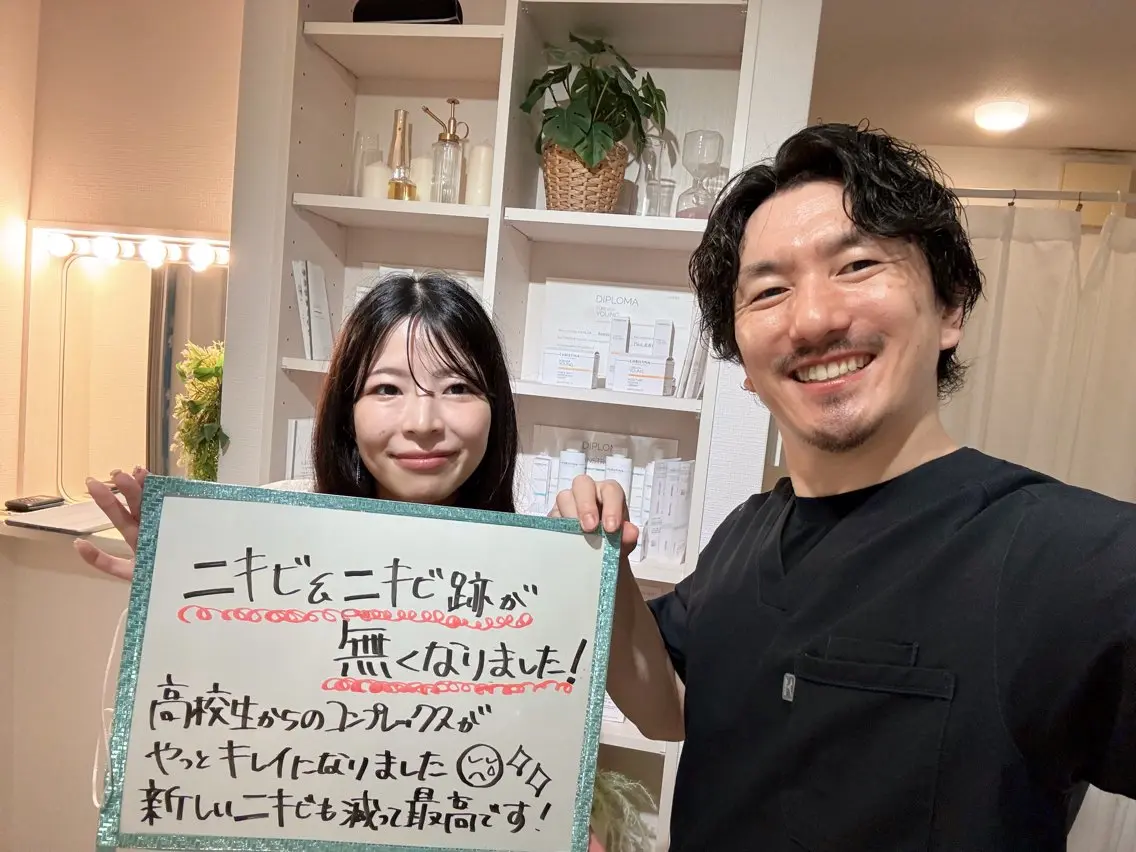 DIPLOMA
YOUNG
DIPLOMA
ニキビ&ニキビ跡が
無くなりました!
高校生からのコンプレックスが
やっとキレイになりました
新しいニキビも減って最高です!